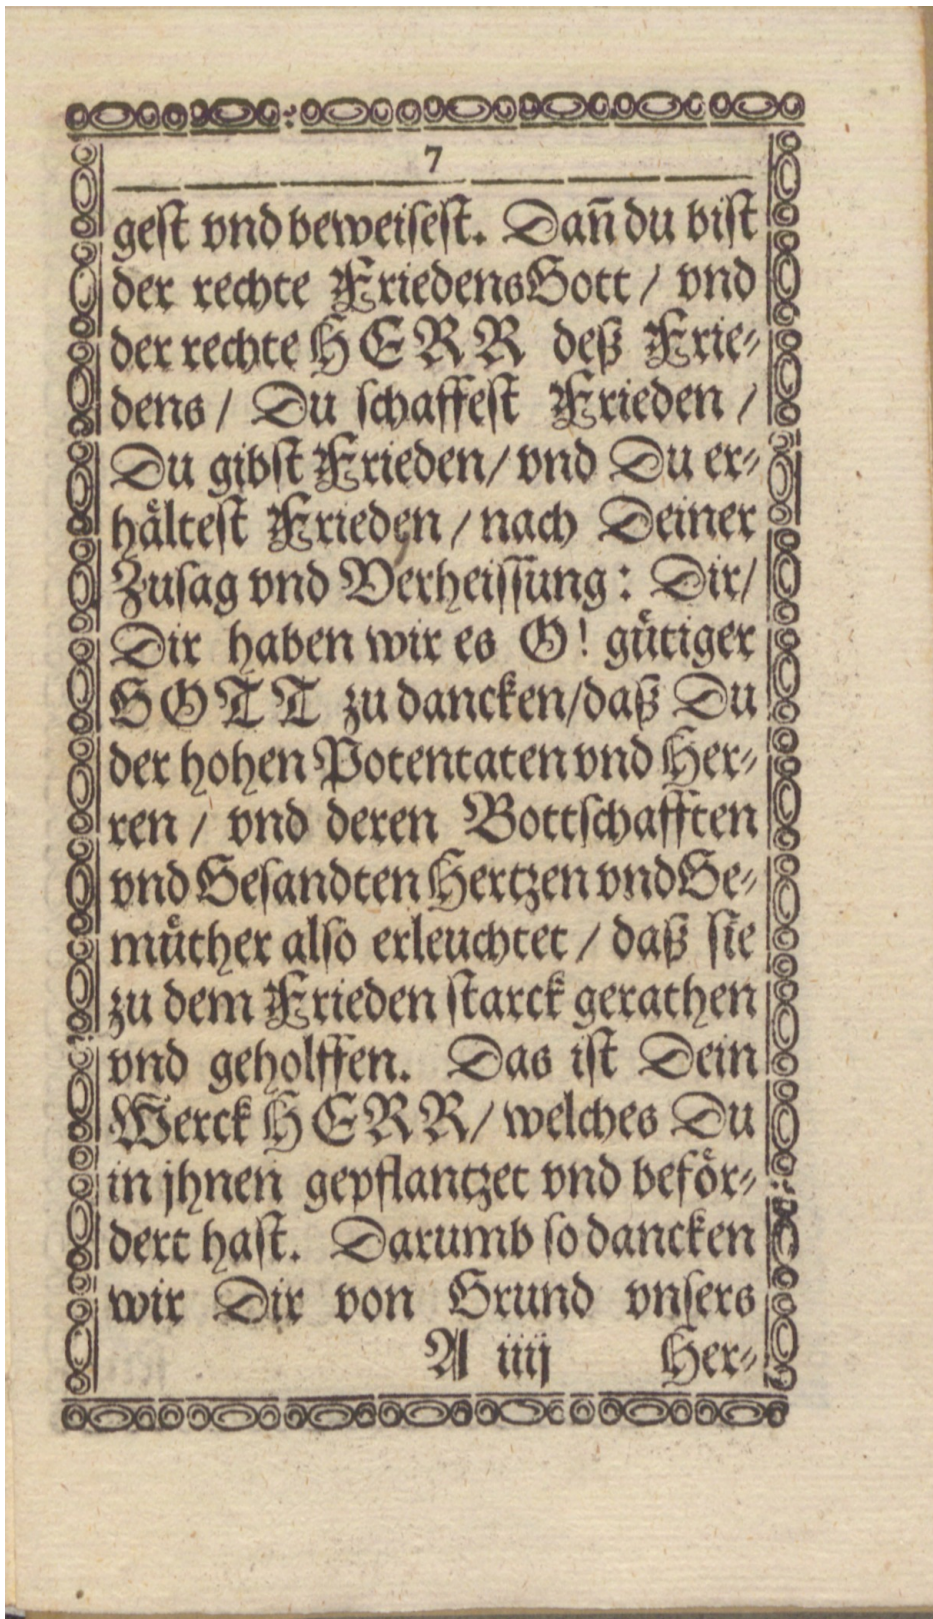 7
gest vnd beweisest. Dañ du bist
der rechte FriedensGott / vnd
der rechte HERR deß Frie-
dens / Du schaffest Frieden /
Du gibst Frieden / vnd Du er-
hältest Frieden / nach Deiner
Zusag vnd Verheissung: Dir /
Dir haben wir es O! gütiger
GOTT zu dancken / daß Du
der hohen Potentaten vnd Her-
ren / vnd deren Bottschafften
vnd Gesandten Hertzen vnd Ge-
müther also erleuchtet / daß sie
zu dem Frieden starck gerathen
vnd geholffen. Das ist Dein
Werck HERR / welches Du
in jhnen gepflantzet vnd beför-
dert hast. Darumb so dancken
wir Dir von Grund vnsers
A iiij Her-